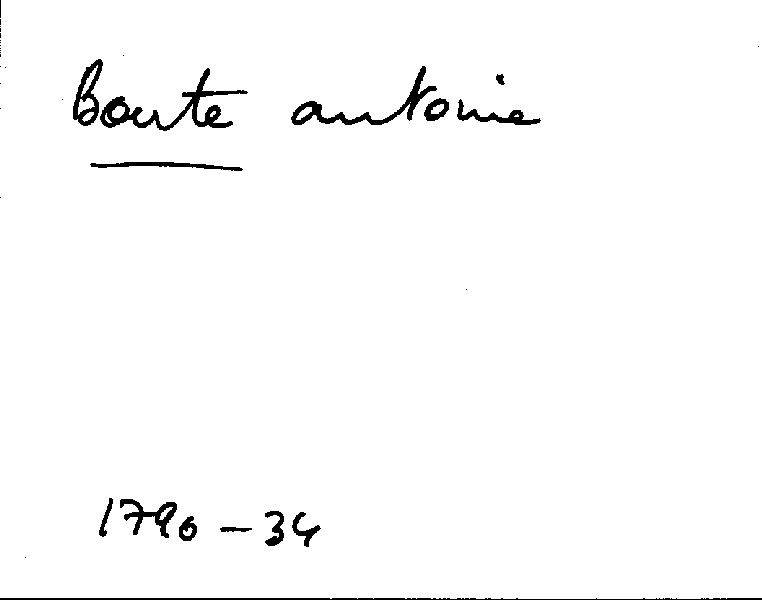 Boute antoine
1790 - 34